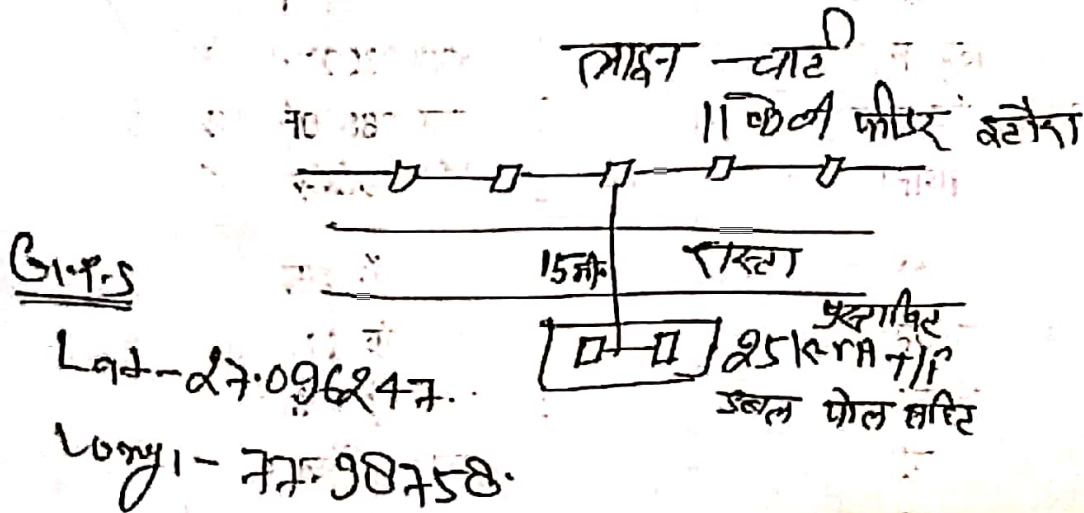 लाइन चार्ट
11 केवी फीडर इटौरा
15 मी०
रास्ता
G.P.S
Lat - 27.096247.
Long1 - 77.98758.
प्रस्तावित
25 K-VA T/F
डबल पोल सहित